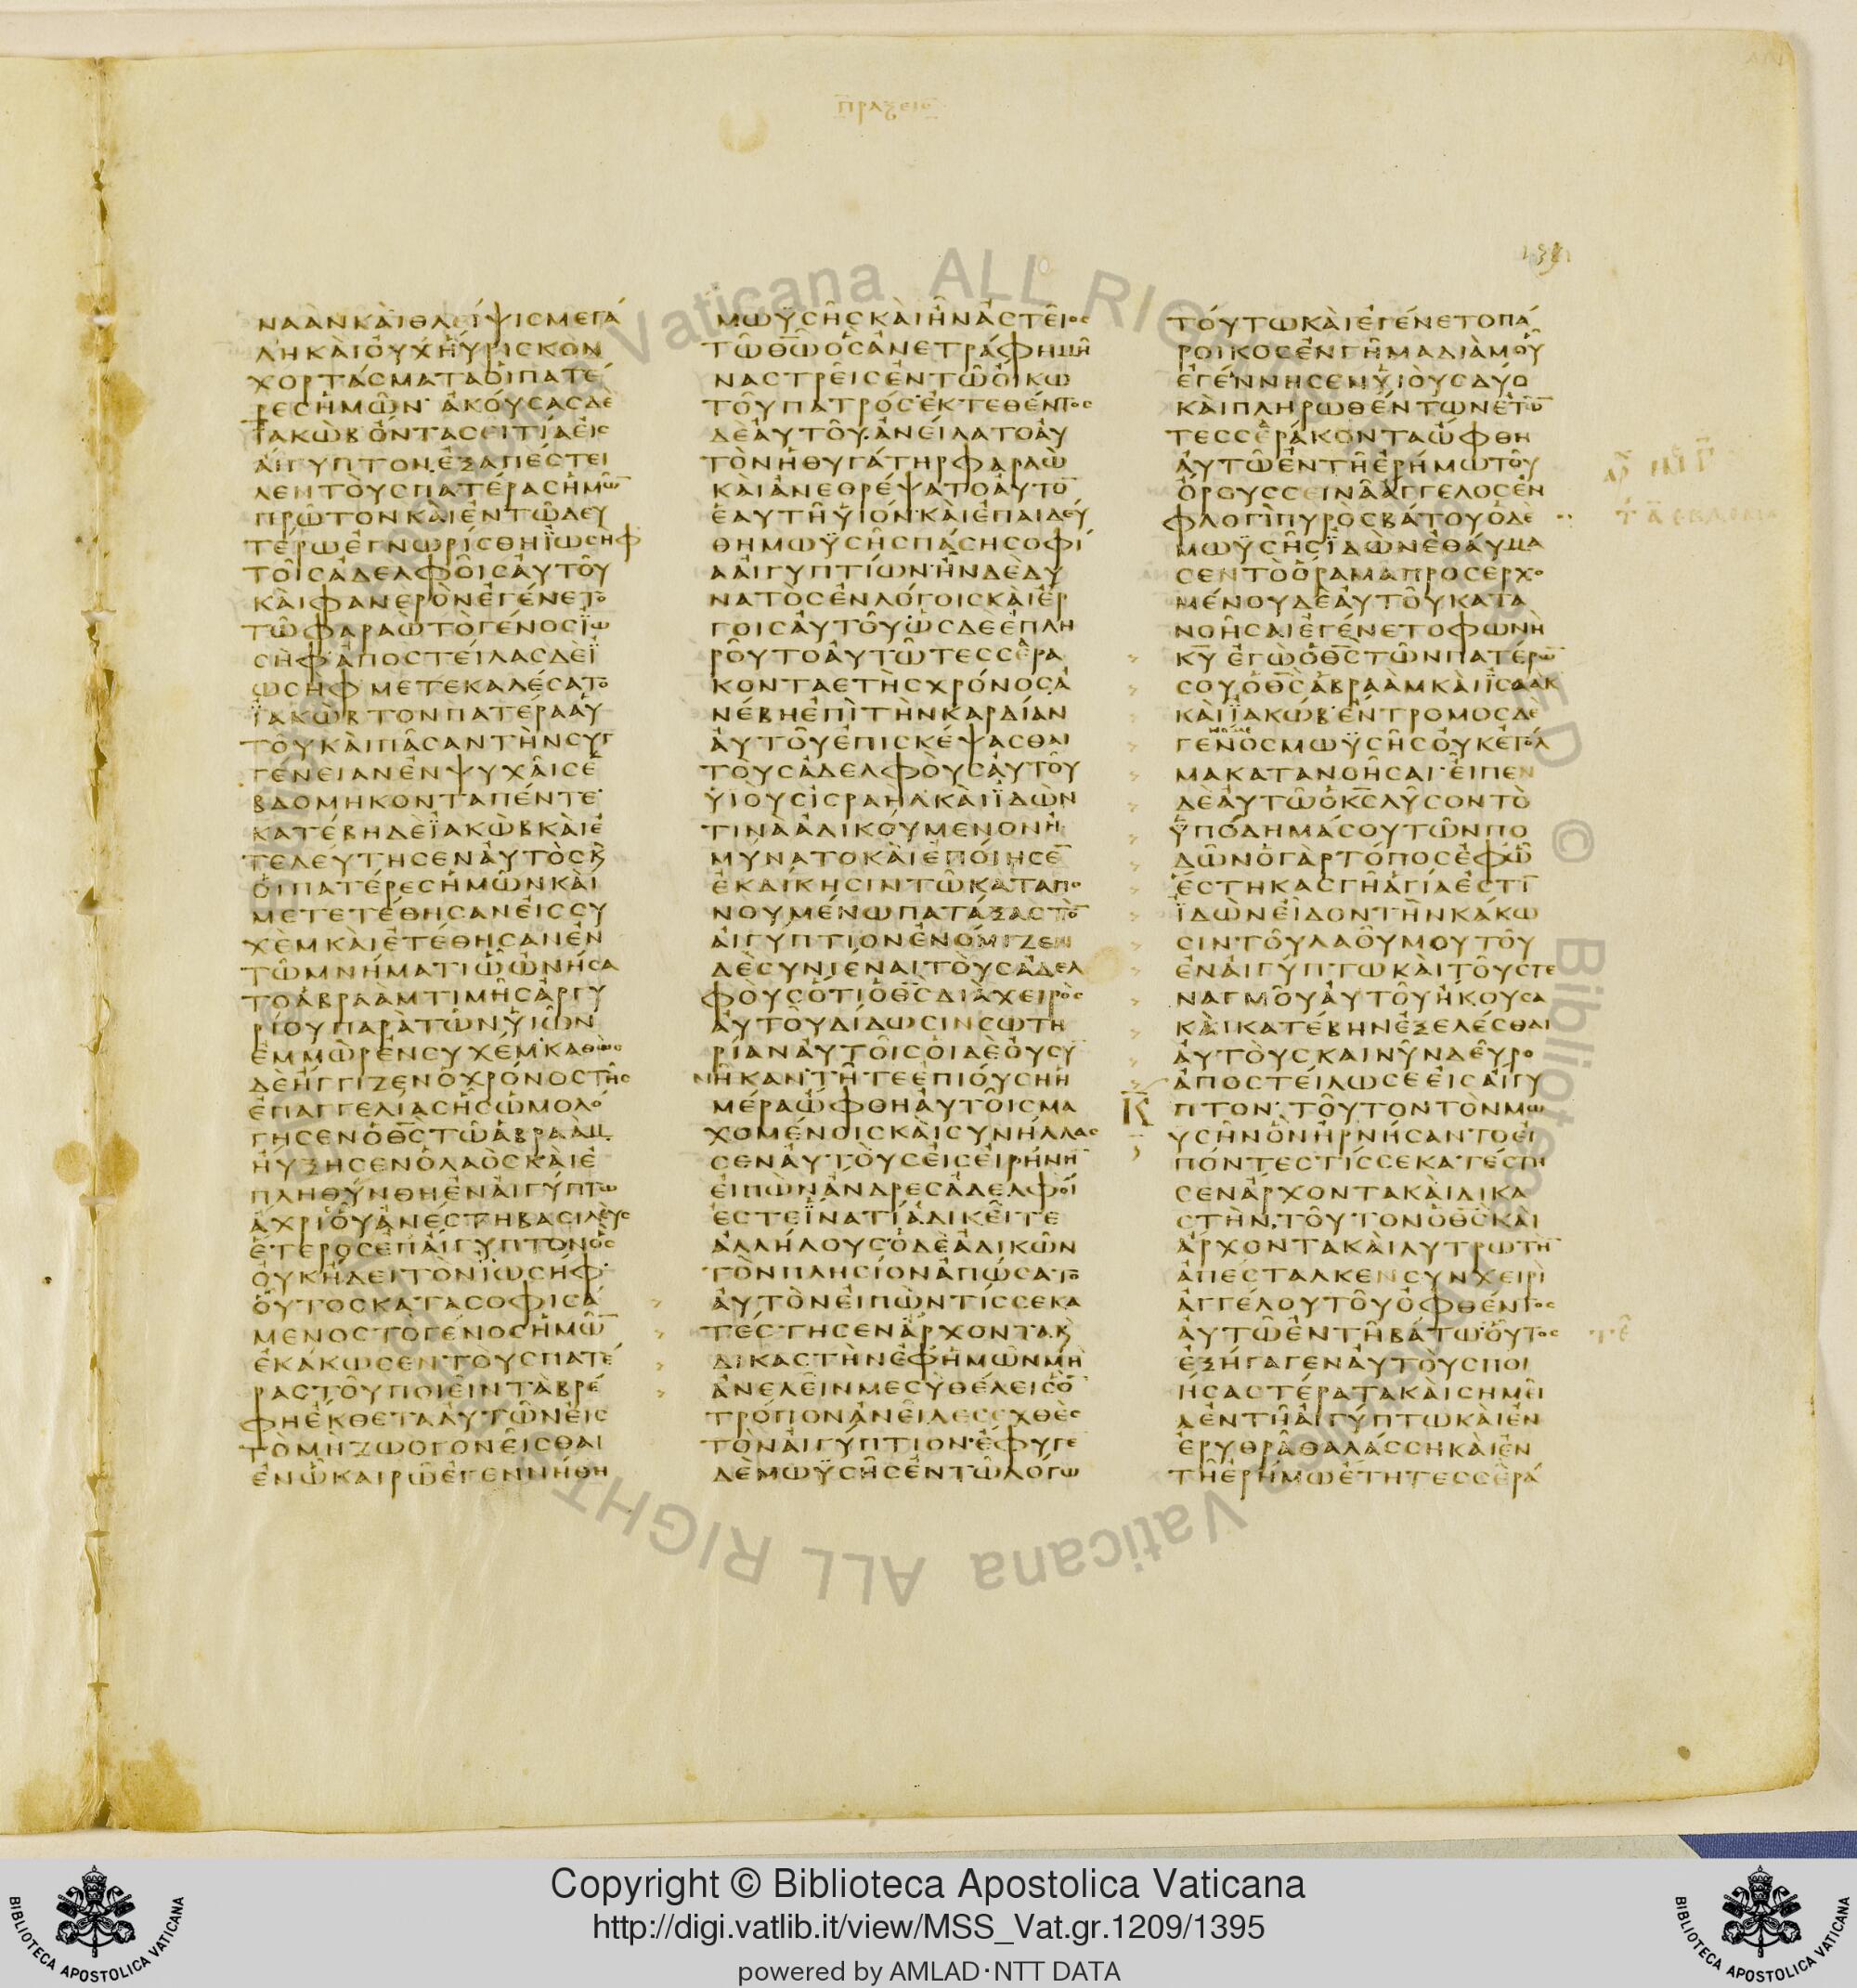 πραξεις
ΝΑΑΝΚΑΙΘΛΕΙΨΙΣΜΕΓΑ
ΛΗΚΑΙΟΥΧΗΥΡΙΣΚΟΝ
ΧΟΡΤΑΣΜΑΤΑΟΙΠΑΤΕ
ΡΕΣΗΜΩΝ· ΑΚΟΥΣΑΣΔΕ
ΪΑΚΩΒΟΝΤΑΣΕΙΤΙΑΕΙΣ
ΑΙΓΥΠΤΟΝ.ΕΞΑΠΕΣΤΕΙ
ΛΕΝΤΟΥΣΠΑΤΕΡΑΣΗΜΩ̅
ΠΡΩΤΟΝΚΑΙΕΝΤΩΔΕΥ
ΤΕΡΩΕΓΝΩΡΙΣΘΗΪΩΣΗΦ
ΤΟΙΣΑΔΕΛΦΟΙΣΑΥΤΟΥ
ΚΑΙΦΑΝΕΡΟΝΕΓΕΝΕΤΟ
ΤΩΦΑΡΑΩΤΟΓΕΝΟΣΪΩ
ΣΗΦ·ΑΠΟΣΤΕΙΛΑΣΔΕΪ
ΩΣΗΦ ΜΕΤΕΚΑΛΕΣΑΤΟ
ΪΑΚΩΒΤΟΝΠΑΤΕΡΑΑΥ
ΤΟΥΚΑΙΠΑΣΑΝΤΗΝΣΥΓ
ΓΕΝΕΙΑΝΕΝΨΥΧΑΙΣΕ
ΒΔΟΜΗΚΟΝΤΑΠΕΝΤΕ·
ΚΑΤΕΒΗΔΕΪΑΚΩΒΚΑΙΕ
ΤΕΛΕΥΤΗΣΕΝΑΥΤΟΣϏ
ΟΙΠΑΤΕΡΕΣΗΜΩΝΚΑΙ
ΜΕΤΕΤΕΘΗΣΑΝΕΙΣΣΥ
ΧΕΜΚΑΙΕΤΕΘΗΣΑΝΕΝ
ΤΩΜΝΗΜΑΤΙΩΩΝΗΣΑ
ΤΟΑΒΡΑΑΜΤΙΜΗΣΑΡΓΥ
ΡΙΟΥΠΑΡΑΤΩΝΫΙΩΝ
ΕΜΜΩΡΕΝΣΥΧΕΜ·ΚΑΘΩΣ
ΔΕΗΓΓΙΖΕΝΟΧΡΟΝΟΣΤΗΣ
ΕΠΑΓΓΕΛΙΑΣΗΣΩΜΟΛΟ
ΓΗΣΕΝΟΘ̅Σ̅ΤΩΑΒΡΑΑΜ.
ΗΥΞΗΣΕΝΟΛΑΟΣΚΑΙΕ
ΠΛΗΘΥΝΘΗΕΝΑΙΓΥΠΤΩ
ΑΧΡΙΟΥΑΝΕΣΤΗΒΑΣΙΛΕΥΣ
ΕΤΕΡΟΣΕΠΑΙΓΥΠΤΟΝΟΣ
ΟΥΚΗΔΕΙΤΟΝΪΩΣΗΦ·
ΟΥΤΟΣΚΑΤΑΣΟΦΙΣΑ
ΜΕΝΟΣΤΟΓΕΝΟΣΗΜΩ̅
ΕΚΑΚΩΣΕΝΤΟΥΣΠΑΤΕ
ΡΑΣΤΟΥΠΟΙΕΙΝΤΑΒΡΕ
ΦΗΕΚΘΕΤΑΑΥΤΩΝΕΙΣ
ΤΟΜΗΖΩΟΓΟΝΕΙΣΘΑΙ
ΕΝΩΚΑΙΡΩΕΓΕΝΝΗΘΗ
ΜΩΫΣΗΣΚΑΙΗΝΑΣΤΕΙΟΣ
ΤΩΘ̅Ω̅ΟΣΑΝΕΤΡΑΦΗΜΗ
ΝΑΣΤΡΕΙΣΕΝΤΩΟΙΚΩ
ΤΟΥΠΑΤΡΟΣ·ΕΚΤΕΘΕΝΤΟΣ
ΔΕΑΥΤΟΥ.ΑΝΕΙΛΑΤΟΑΥ
ΤΟΝΗΘΥΓΑΤΗΡΦΑΡΑΩ
ΚΑΙΑΝΕΘΡΕΨΑΤΟΑΥΤΟ̅
ΕΑΥΤΗΫΙΟΝ·ΚΑΙΕΠΑΙΔΕΥ
ΘΗΜΩΫΣΗΣΠΑΣΗΣΟΦΙ
ΑΑΙΓΥΠΤΙΩΝ·ΗΝΔΕΔΥ
ΝΑΤΟΣΕΝΛΟΓΟΙΣΚΑΙΕΡ
ΓΟΙΣΑΥΤΟΥΩΣΔΕΕΠΛΗ
ΡΟΥΤΟΑΥΤΩΤΕΣΣΕΡΑ
ΚΟΝΤΑΕΤΗΣΧΡΟΝΟΣΑ
ΝΕΒΗΕΠΙΤΗΝΚΑΡΔΙΑΝ
ΑΥΤΟΥΕΠΙΣΚΕΨΑΣΘΑΙ
ΤΟΥΣΑΔΕΛΦΟΥΣΑΥΤΟΥ
ΥΙΟΥΣΙΣΡΑΗΛΚΑΙΪΔΩΝ
ΤΙΝΑΑΔΙΚΟΥΜΕΝΟΝΗ
ΜΥΝΑΤΟΚΑΙΕΠΟΙΗΣΕ̅
ΕΚΔΙΚΗΣΙΝΤΩΚΑΤΑΠΟ
ΝΟΥΜΕΝΩΠΑΤΑΞΑΣΤΟ̅
ΑΙΓΥΠΤΙΟΝΕΝΟΜΙΖΕΝ
ΔΕΣΥΝΙΕΝΑΙΤΟΥΣΑΔΕΛ
ΦΟΥΣΟΤΙΟΘ̅Σ̅ΔΙΑΧΕΙΡΟΣ
ΑΥΤΟΥΔΙΔΩΣΙΝΣΩΤΗ
ΡΙΑΝΑΥΤΟΙΣΟΙΔΕΟΥΣΥ
ΝΗΚΑΝ·ΤΗΤΕΕΠΙΟΥΣΗΗ
ΜΕΡΑΩΦΘΗΑΥΤΟΙΣΜΑ
ΧΟΜΕΝΟΙΣΚΑΙΣΥΝΗΛΛΑΣ
ΣΕΝΑΥΤΟΥΣΕΙΣΕΙΡΗΝΗ̅
ΕΙΠΩΝΑΝΔΡΕΣΑΔΕΛΦΟΙ
ΕΣΤΕΪΝΑΤΙΑΔΙΚΕΙΤΕ
ΑΛΛΗΛΟΥΣ·ΟΔΕΑΔΙΚΩΝ
ΤΟΝΠΛΗΣΙΟΝΑΠΩΣΑΤΟ
ΑΥΤΟΝΕΙΠΩΝΤΙΣΣΕΚΑ
ΤΕΣΤΗΣΕΝΑΡΧΟΝΤΑϏ
ΔΙΚΑΣΤΗΝΕΦΗΜΩΝΜΗ
ΑΝΕΛΕΙΝΜΕΣΥΘΕΛΕΙΣΟ̅
ΤΡΟΠΟΝΑΝΕΙΛΕΣΕΧΘΕΣ
ΤΟΝΑΙΓΥΠΤΙΟΝ·ΕΦΥΓΕ
ΔΕΜΩΫΣΗΣΕΝΤΩΛΟΓΩ
ΤΟΥΤΩΚΑΙΕΓΕΝΕΤΟΠΑ
ΡΟΙΚΟΣΕΝΓΗΜΑΔΙΑΜΟΥ
ΕΓΕΝΝΗΣΕΝΫΙΟΥΣΔΥΟ
ΚΑΙΠΛΗΡΩΘΕΝΤΩΝΕΤΩ̅
ΤΕΣΣΕΡΑΚΟΝΤΑΩΦΘΗ
ΑΥΤΩΕΝΤΗΕΡΗΜΩΤΟΥ
ΟΡΟΥΣΣΕΙΝΑΑΓΓΕΛΟΣΕΝ
ΦΛΟΓΙΠΥΡΟΣΒΑΤΟΥΟΔΕ
ΜΩΫΣΗΣΪΔΩΝΕΘΑΥΜΑ
ΣΕΝΤΟΟΡΑΜΑΠΡΟΣΕΡΧΟ
ΜΕΝΟΥΔΕΑΥΤΟΥΚΑΤΑ
ΝΟΗΣΑΙΕΓΕΝΕΤΟΦΩΝΗ
Κ̅Υ̅ ΕΓΩΟΘ̅Σ̅ΤΩΝΠΑΤΕΡΩ̅
ΣΟΥΟΘ̅Σ̅ΑΒΡΑΑΜΚΑΙΪΣΑΑΚ
ΚΑΙΪΑΚΩΒ·ΕΝΤΡΟΜΟΣΔΕ
ΓΕΝΟΣΜΩΫΣΗΣΟΥΚΕΤΟΛ
ΜΑΚΑΤΑΝΟΗΣΑΙ·ΕΙΠΕΝ
ΔΕΑΥΤΩΟΚ̅Σ̅ΛΥΣΟΝΤΟ
ΫΠΟΔΗΜΑΣΟΥΤΩΝΠΟ
ΔΩΝΟΓΑΡΤΟΠΟΣΕΦΩ
ΕΣΤΗΚΑΣΓΗΑΓΙΑΕΣΤΙ̅
ΪΔΩΝΕΙΔΟΝΤΗΝΚΑΚΩ
ΣΙΝΤΟΥΛΑΟΥΜΟΥΤΟΥ
ΕΝΑΙΓΥΠΤΩΚΑΙΤΟΥΣΤΕ
ΝΑΓΜΟΥΑΥΤΟΥΗΚΟΥΣΑ
ΚΑΙΚΑΤΕΒΗΝΕΞΕΛΕΣΘΑΙ
ΑΥΤΟΥΣΚΑΙΝΥΝΔΕΥΡΟ
ΑΠΟΣΤΕΙΛΩΣΕΕΙΣΑΙΓΥ
ΠΤΟΝ·ΤΟΥΤΟΝΤΟΝΜΩ
ΥΣΗΝΟΝΗΡΝΗΣΑΝΤΟΕΙ
ΠΟΝΤΕΣΤΙΣΣΕΚΑΤΕΣΤΗ
ΣΕΝΑΡΧΟΝΤΑΚΑΙΔΙΚΑ
ΣΤΗΝ,ΤΟΥΤΟΝΟΘ̅Σ̅ΚΑΙ
ΑΡΧΟΝΤΑΚΑΙΛΥΤΡΩΤΗ̅
ΑΠΕΣΤΑΛΚΕΝΣΥΝΧΕΙΡΙ
ΑΓΓΕΛΟΥΤΟΥΟΦΘΕΝΤΟΣ
ΑΥΤΩΕΝΤΗΒΑΤΩ·ΟΥΤΟΣ
ΕΞΗΓΑΓΕΝΑΥΤΟΥΣΠΟΙ
ΗΣΑΣΤΕΡΑΤΑΚΑΙΣΗΜΕΙ
ΑΕΝΤΗΑΙΓΥΠΤΩΚΑΙΕΝ
ΕΡΥΘΡΑΘΑΛΑΣΣΗΚΑΙΕΝ
ΤΗΕΡΗΜΩΕΤΗΤΕΣΣΕΡΑ
Copyright © Biblioteca Apostolica Vaticana
http://digi.vatlib.it/view/MSS_Vat.gr.1209/1395
powered by AMLAD·NTT DATA
BIBLIOTECA APOSTOLICA VATICANA
BIBLIOTECA APOSTOLICA VATICANA